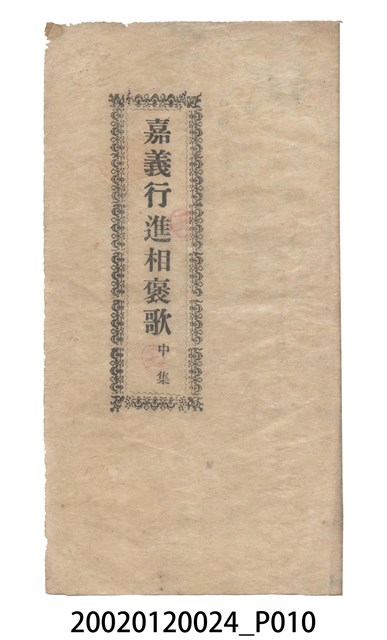 嘉義行進相褒歌 中集
20020120024_P010